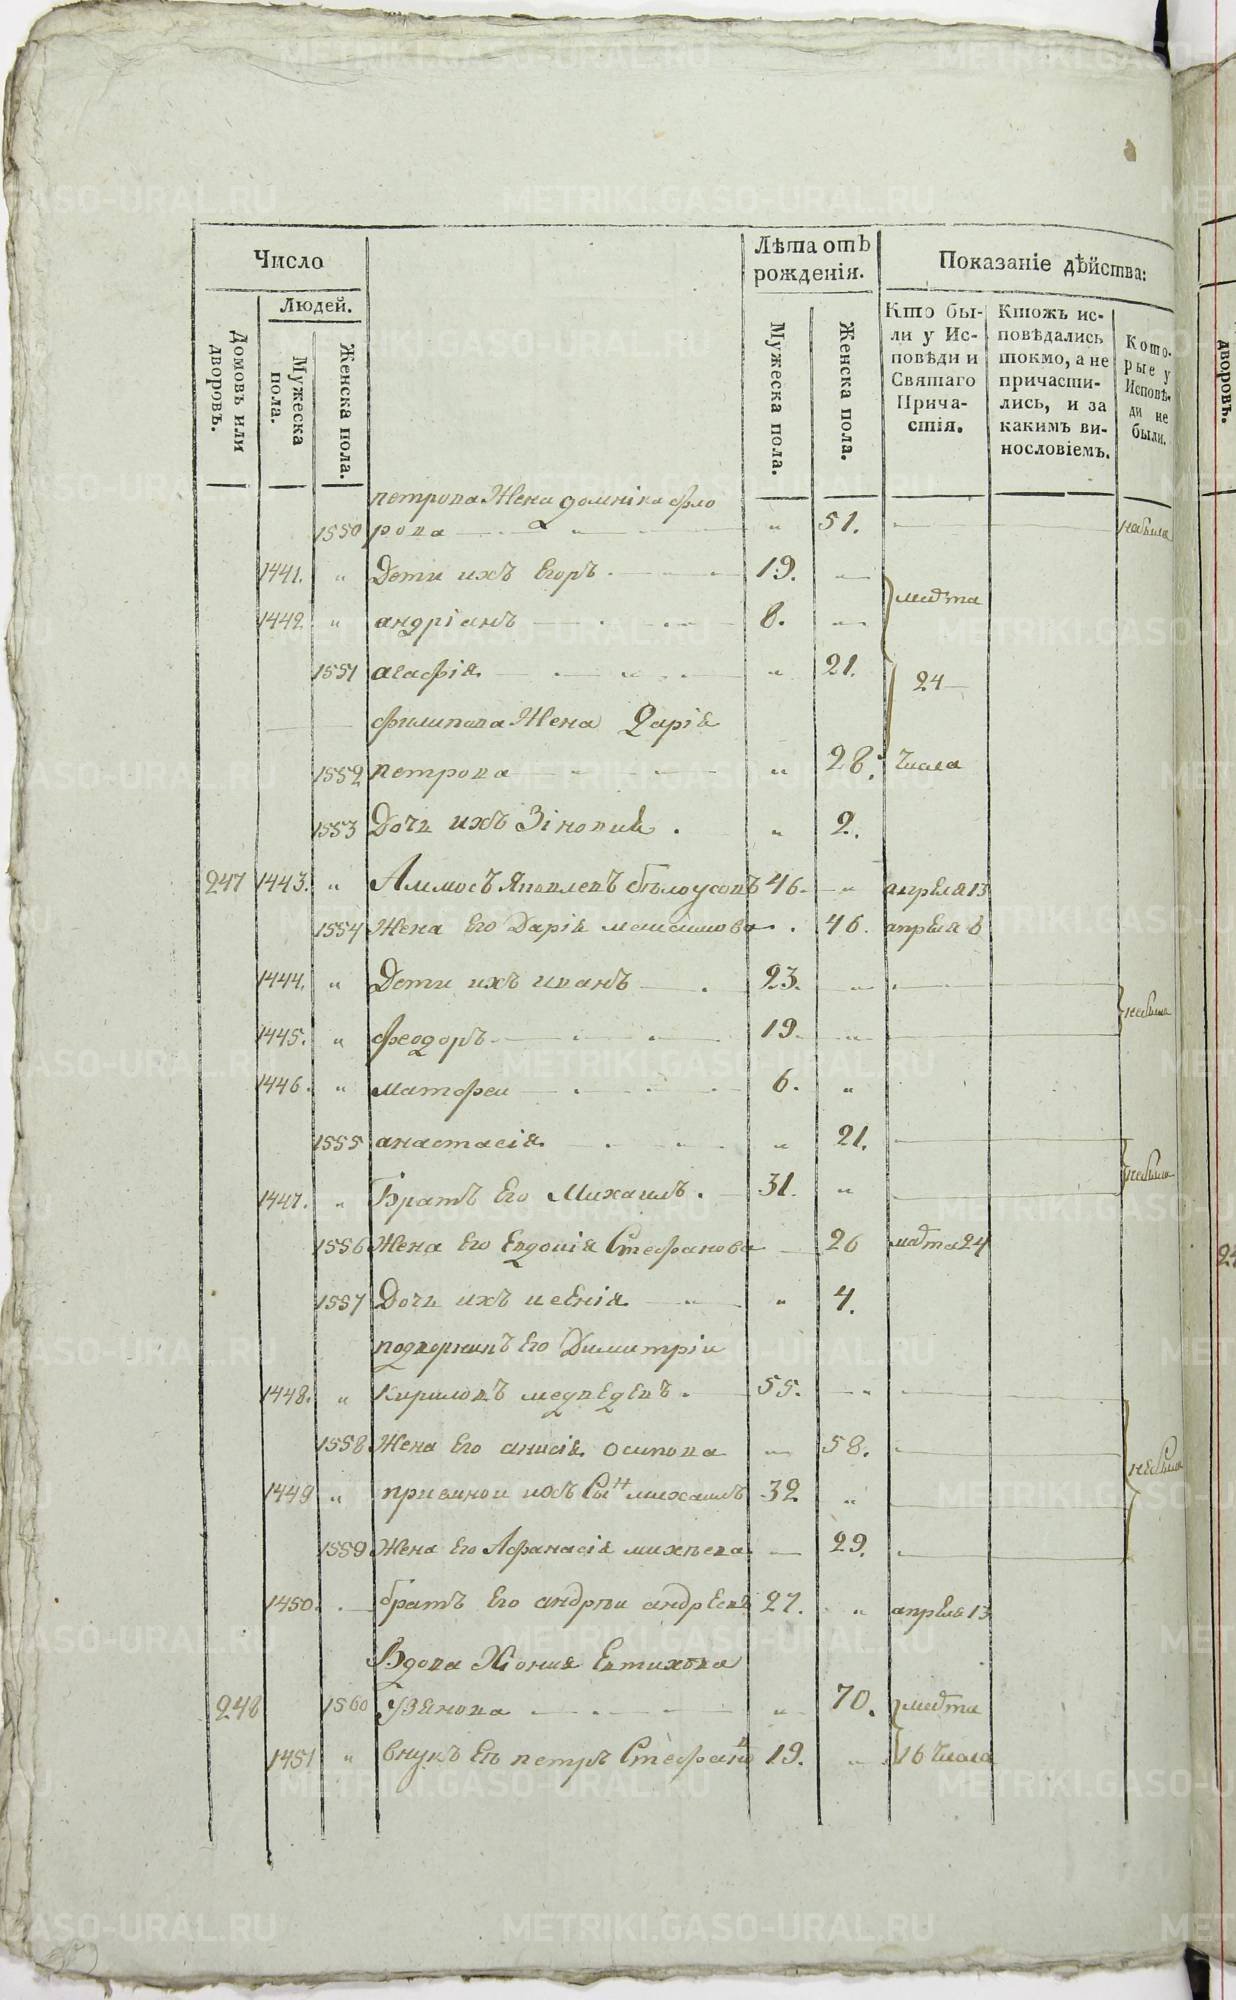 Число
Лѣта отъ рожденія.
Показаніе дѣйства:
Людей.
Домовъ или дворовъ.
Мужеска пола.
Женска пола.
Мужеска пола.
Женска пола.
Кто были у Исповѣди и Святаго Причастія.
Ктожъ исповѣдались токмо, а не причастились, и за какимъ винословіемъ.
Которые у Исповѣди не были.
петрова Жена домніка фло
1550 рова " 51. небыла
1441. " Дети ихъ Егоръ 19. "
1442 " андріанъ 8. " марта
1551 агафія " 21. 24
филипова Жена Дарія
1552 петрова " 28. числа
1553 Дочь ихъ Зіновия " 2.
247 1443. " Аммосъ Яковлевъ бѣлоусовъ 46. " апреля 13
1554 Жена Его Дарія максимова 46. апреля 6
1444. " Дети ихъ иванъ 23. "
небыли
1445. " феодоръ 19. "
1446. " матфеи 6. "
1555 анастасія " 21.
небыли
1447. " Братъ Его Михаилъ 31. "
1556 Жена Его Евдокія Стефанова 26 марта 24
1557 Дочь ихъ " 4.
подворникъ Его Димитріи
1448. " Кириловъ медведевъ 55. "
1558 Жена Его анисія осипова " 58.
небыли
1449 " приемнои ихъ Сынъ михаилъ 32 "
1559 Жена Его Афанасія михѣева 29.
1450. братъ Его андреи андреевъ 27. " апреля 13
Вдова Хіония Евтихѣва
248 1560 " 70. марта
1451 " внукъ Ея петръ Стефановъ 19. " 16 числа
METRIKI.GASO-URAL.RU